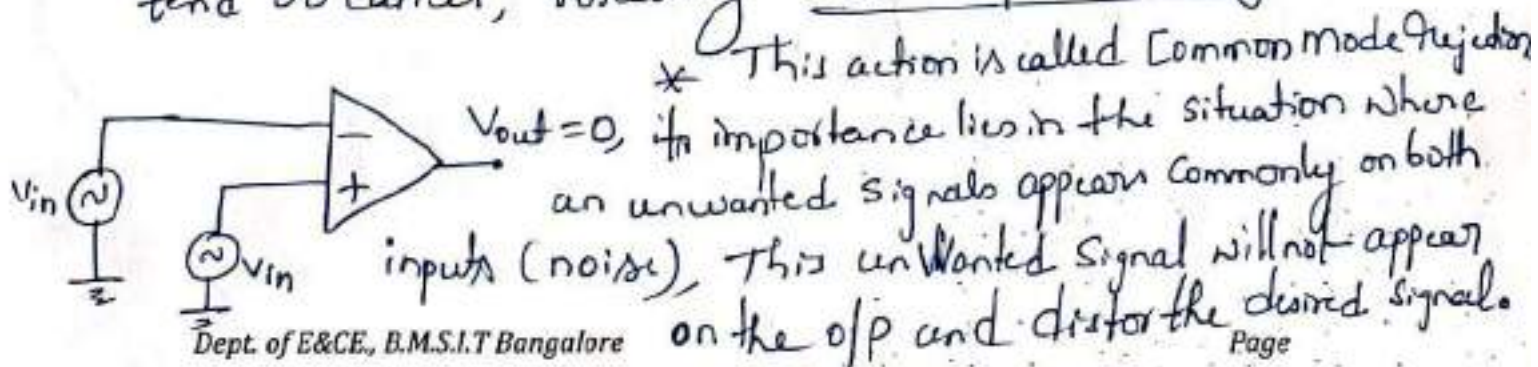 tend to cancel,
* This action is called Common mode rejection
Vout = 0, its importance lies in the situation where
an unwanted signals appears commonly on both
inputs (noise), This unwanted signal will not appear
on the o/p and distor the desired signal.
Vin
Vin
- +
Dept. of E&CE., B.M.S.I.T Bangalore Page